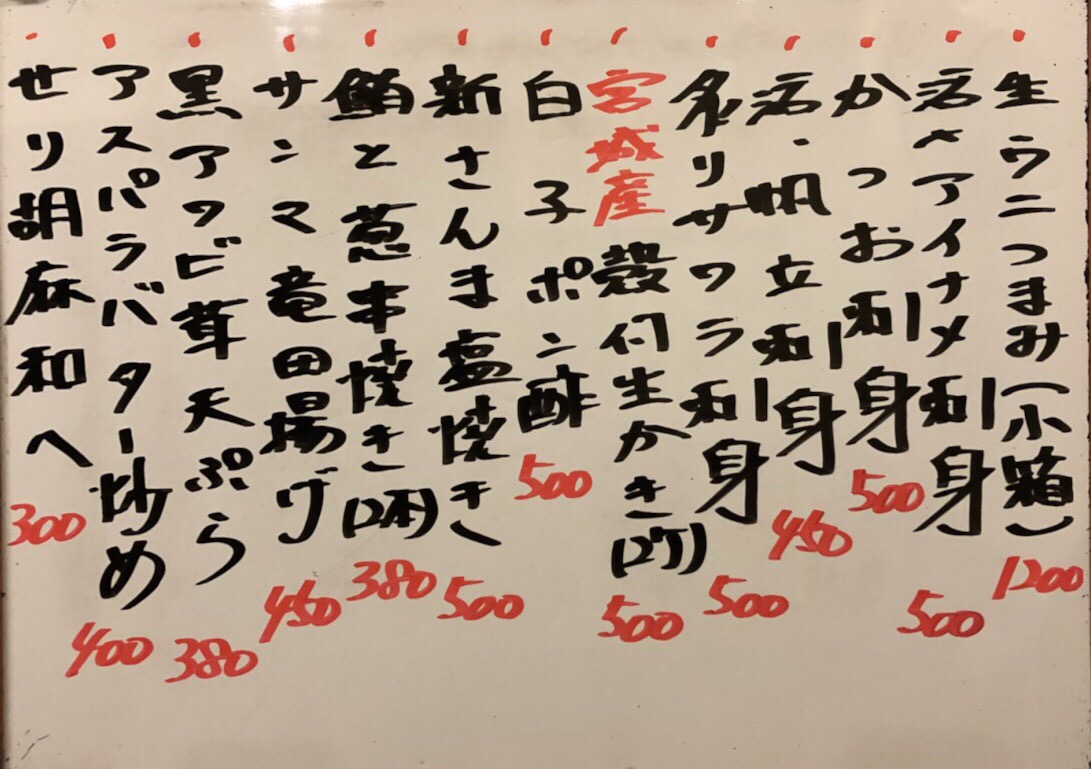 生ウニつまみ(小箱) 1200
活〆アイナメ刺身 500
かつお刺身 500
活・帆立刺身 450
炙リサワラ刺身 500
宮城産 殻付生かき(2ケ) 500
白子ポン酢 500
新さんま塩焼き 500
鮪と葱串焼き(2本) 380
サンマ竜田揚げ 450
黒アワビ茸天ぷら 380
アスパラバター炒め 400
せり胡麻和へ 300